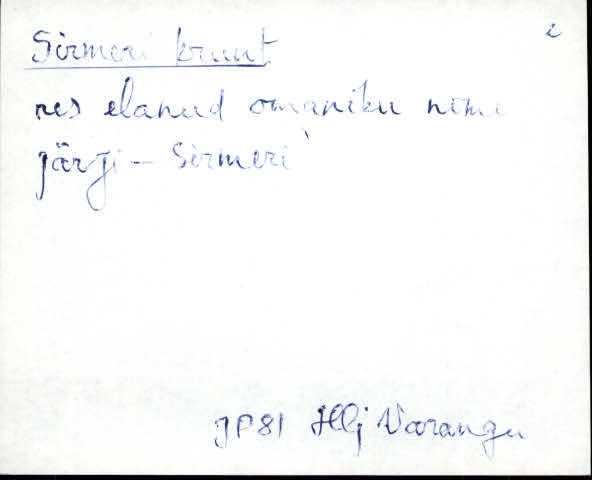 2
Sirmeri krunt
nes elanud omaniku nime
järji - Sirmeri
JP81 Hlj Varangu